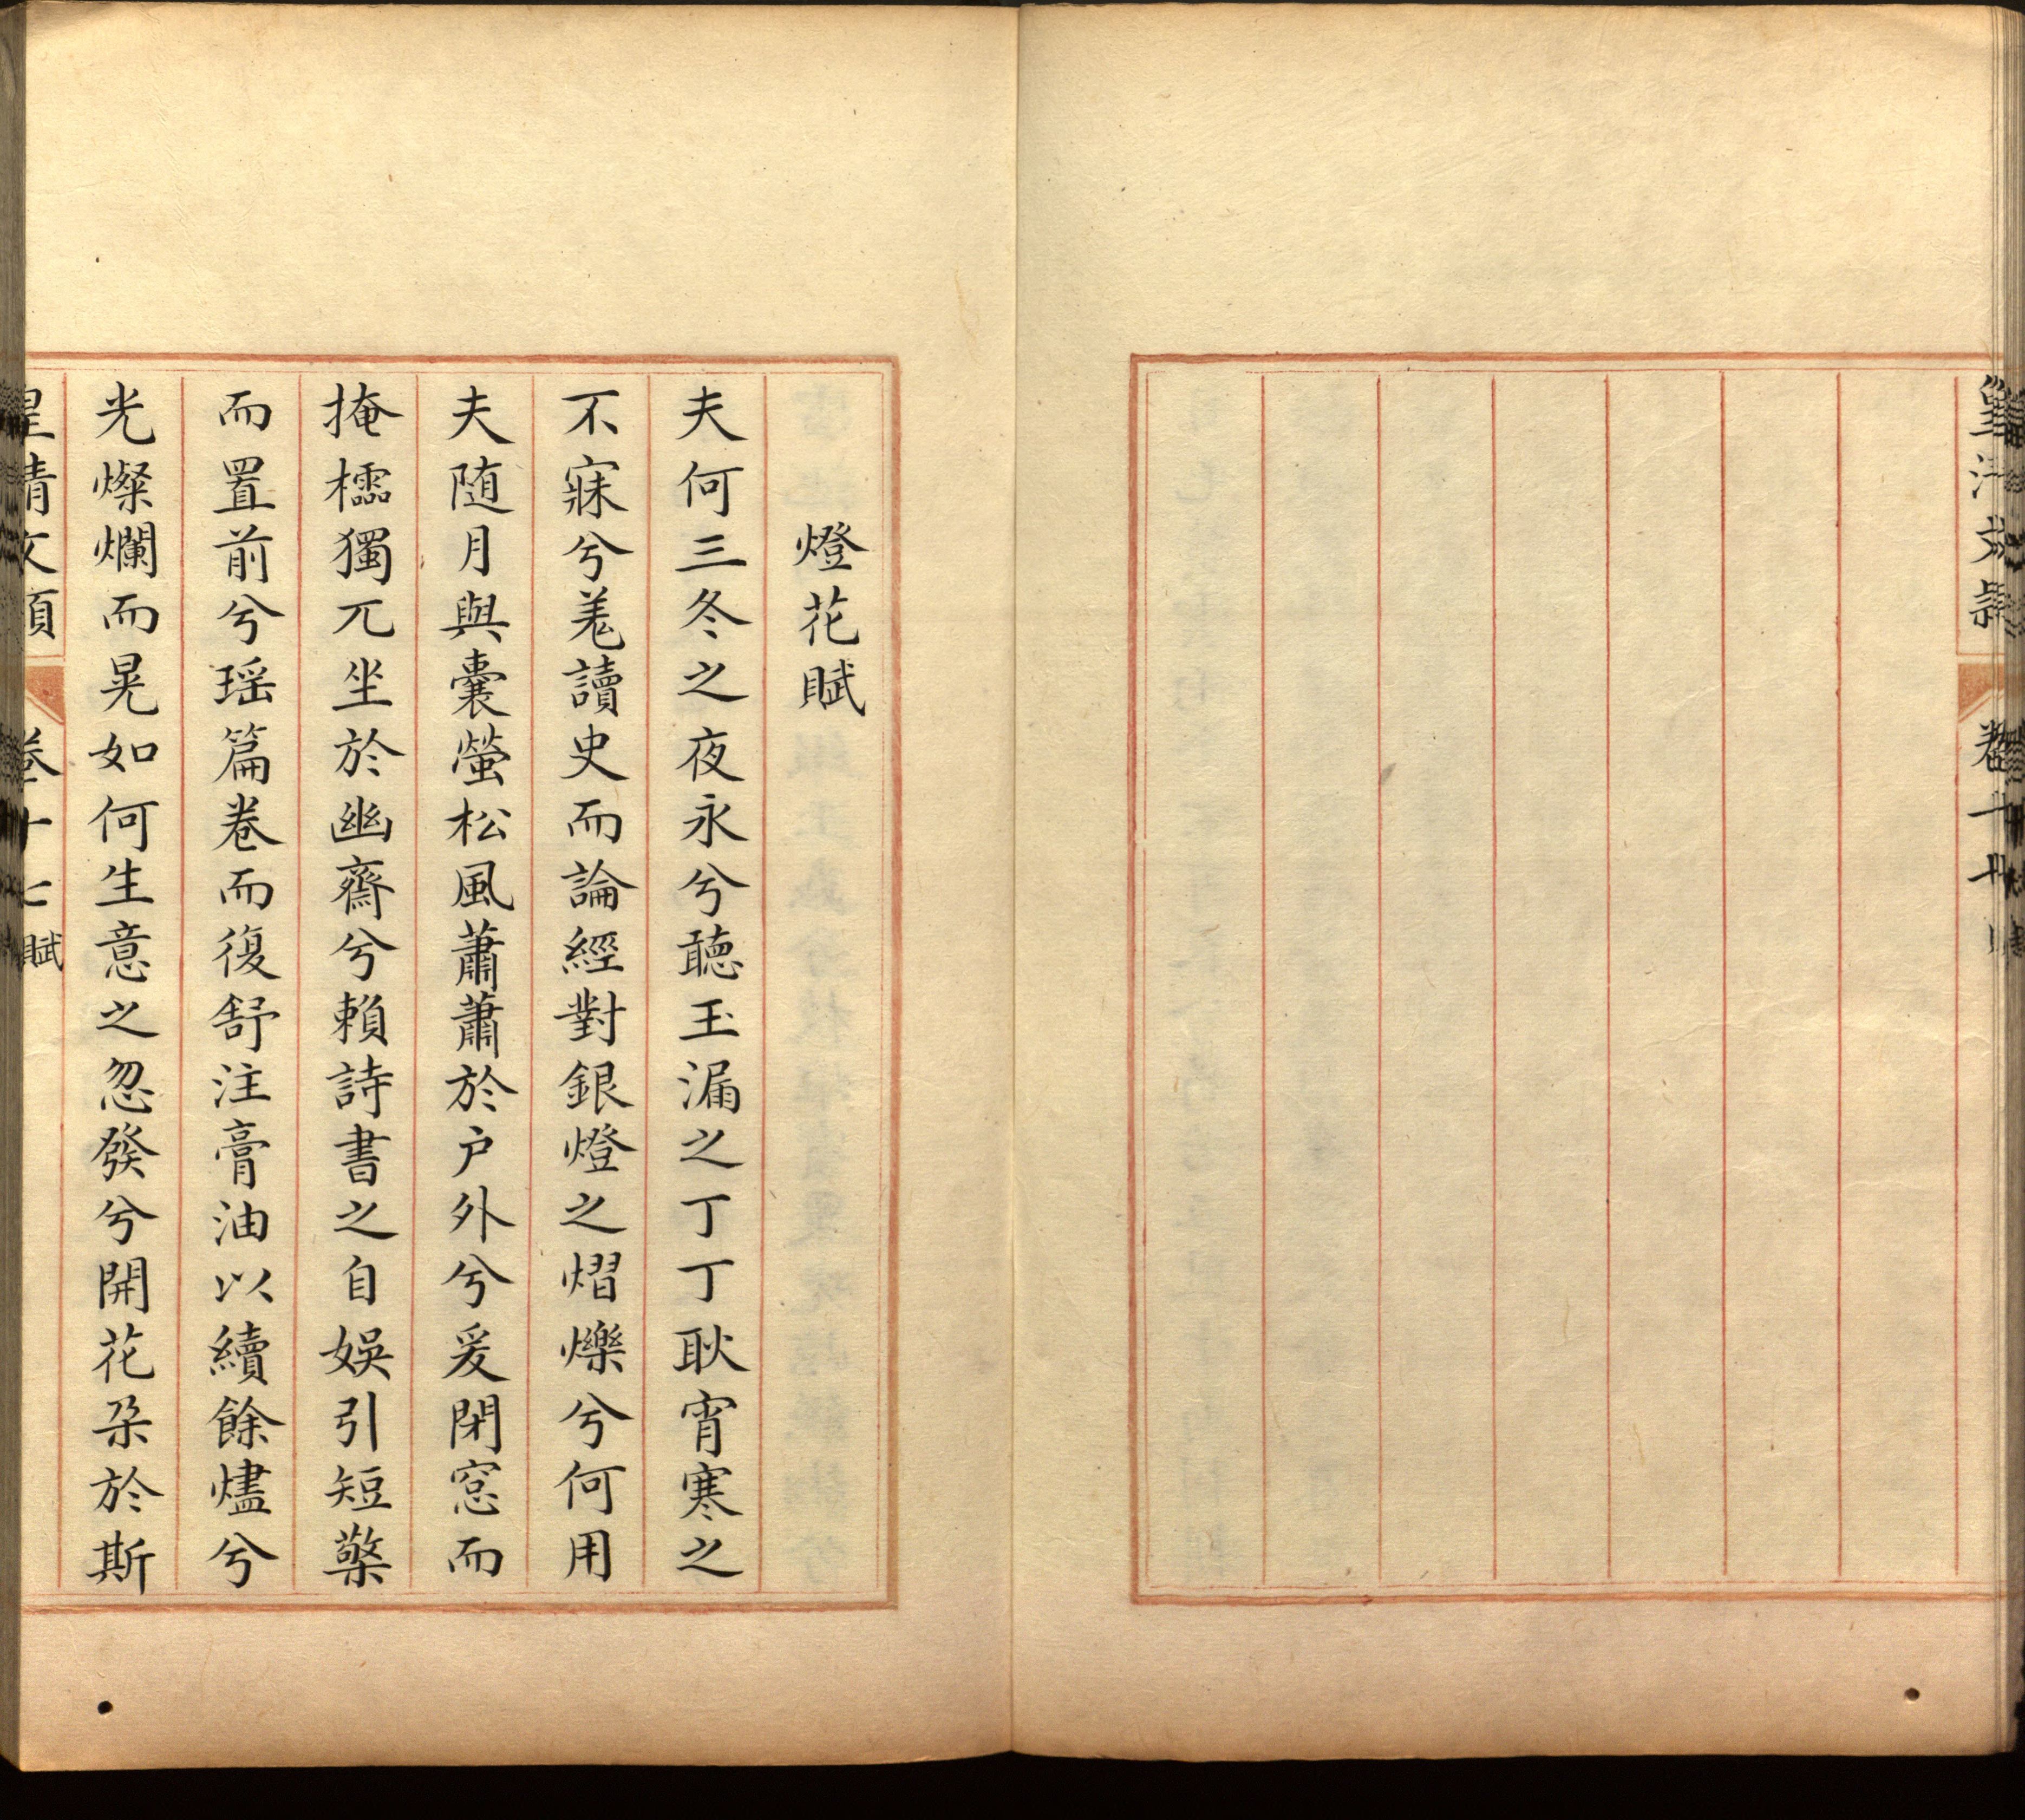 燈花賦
夫何三冬之夜永兮聽玉漏之丁丁耿宵寒之
不寐兮羗讀史而論經對銀燈之熠爍兮何用
夫随月與囊螢松風蕭蕭於户外兮爰閉窓而
掩櫺獨兀坐於幽齋兮賴詩書之自娛引短檠
而置前兮瑶篇卷而復舒注膏油以續餘燼兮
光燦爛而晃如何生意之忽發兮開花朶於斯
皇清文穎 卷十七 賦